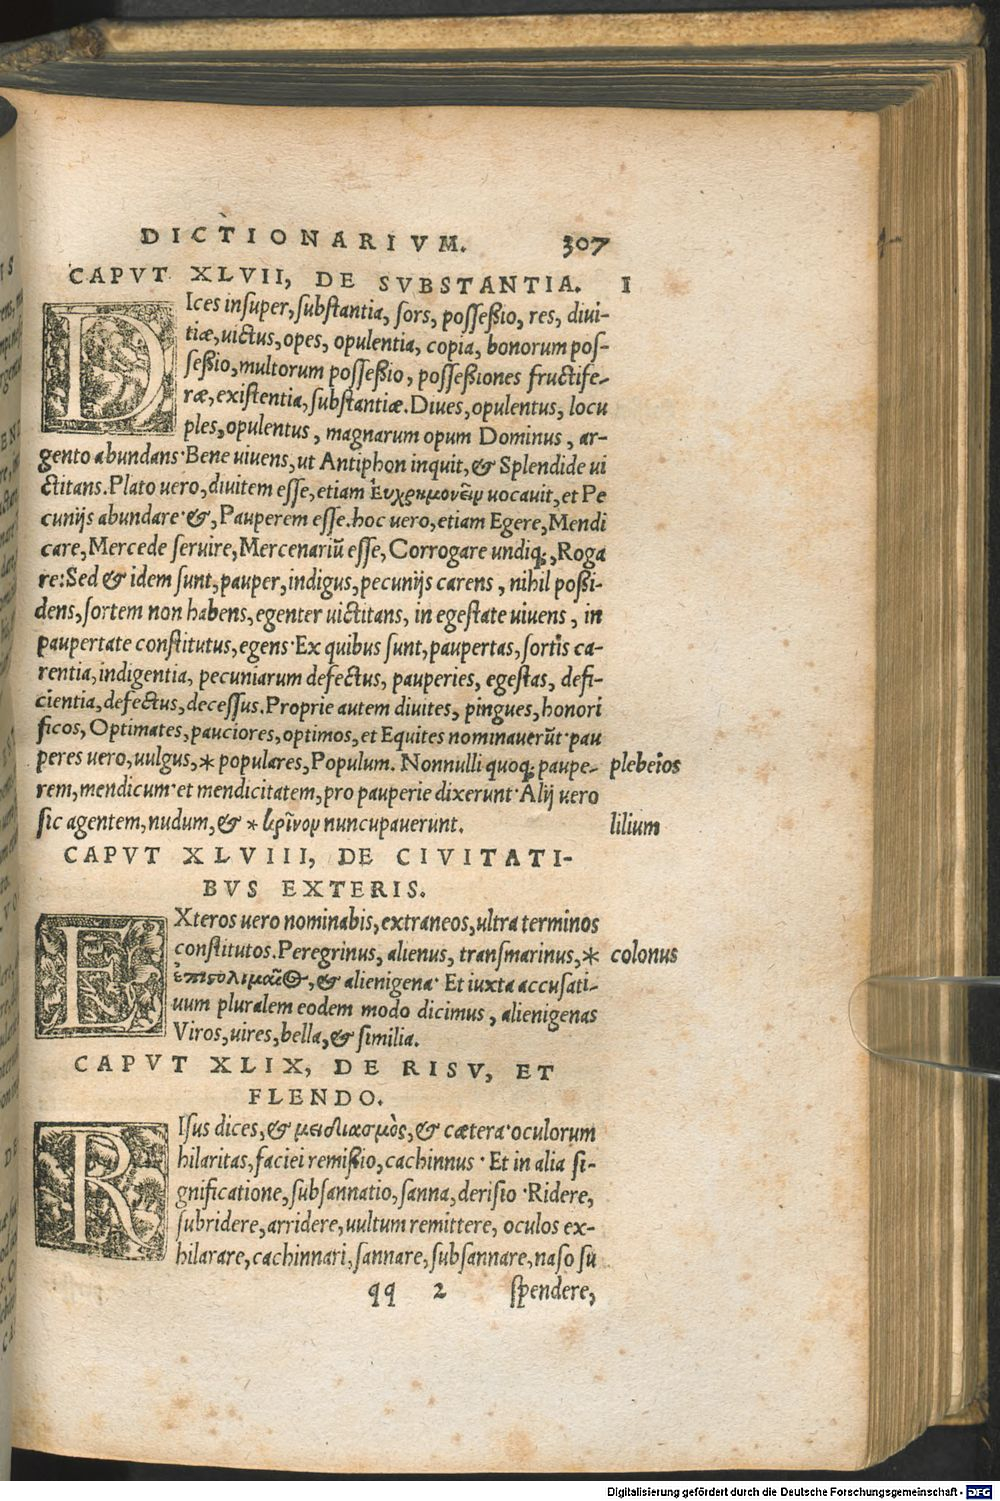 DICTIONARIVM. 307
CAPVT XLVII, DE SVBSTANTIA. I
DIces insuper, substantia, sors, possessio, res, diui-
tiæ, uictus, opes, opulentia, copia, bonorum pos-
sessio, multorum possessio, possessiones fructife-
ræ, existentia, substantiæ. Diues, opulentus, locu
ples, opulentus, magnarum opum Dominus, ar-
gento abundans· Bene uiuens, ut Antiphon inquit, & Splendide ui
ctitans. Plato uero, diuitem esse, etiam uocauit, et Pe
cunijs abundare· &, Pauperem esse. hoc uero, etiam Egere, Mendi
care, Mercede seruire, Mercenariũ esse, Corrogare undiq;, Roga
re: Sed & idem sunt, pauper, indigus, pecunijs carens, nihil possi-
dens, sortem non habens, egenter uictitans, in egestate uiuens, in
paupertate constitutus, egens· Ex quibus sunt, paupertas, sortis ca-
rentia, indigentia, pecuniarum defectus, pauperies, egestas, defi-
cientia, defectus, decessus. Proprie autem diuites, pingues, honori
ficos, Optimates, pauciores, optimos, et Equites nominauerũt· pau
peres uero, uulgus, * populares, Populum. Nonnulli quoq; paupe- plebeios
rem, mendicum· et mendicitatem, pro pauperie dixerunt· Alij uero
sic agentem, nudum, & * nuncupauerunt. lilium
CAPVT XLVIII, DE CIVITATI-
BVS EXTERIS.
EXteros uero nominabis, extraneos, ultra terminos
constitutos. Peregrinus, alienus, transmarinus, * colonus
, & alienigena· Et iuxta accusati-
uum pluralem eodem modo dicimus, alienigenas
Viros, uires, bella, & similia.
CAPVT XLIX, DE RISV, ET
FLENDO.
RIsus dices, & μειδιασμὸς, & cætera· oculorum
hilaritas, faciei remissio, cachinnus· Et in alia si-
gnificatione, subsannatio, sanna, derisio· Ridere,
subridere, arridere, uultum remittere, oculos ex-
hilarare, cachinnari, sannare, subsannare, naso su
qq 2 spendere,
Digitalisierung gefördert durch die Deutsche Forschungsgemeinschaft - DFG